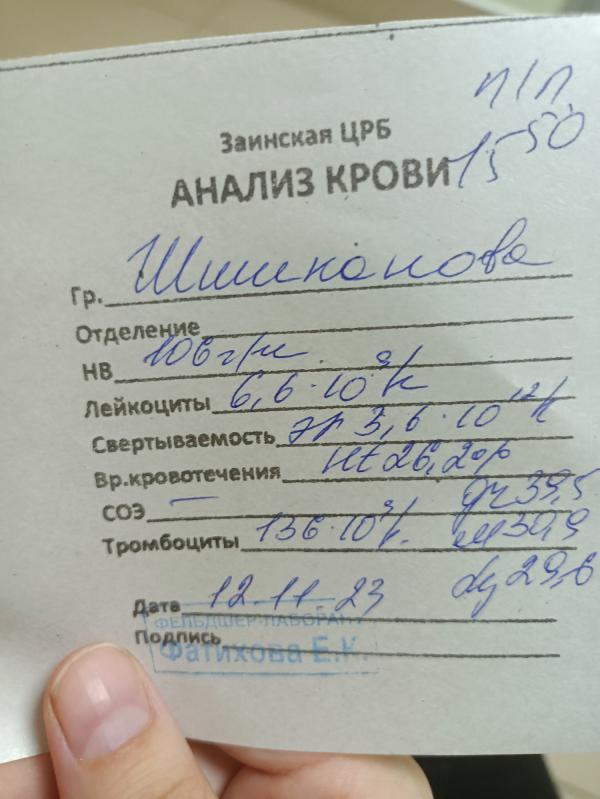 п/п
15 50
Заинская ЦРБ
АНАЛИЗ КРОВИ
Гр. Шишканова
Отделение
НВ 106 г/л
Лейкоциты 6,6·10⁹/л
Свертываемость эр 3,6·10¹²/л
Вр.кровотечения Ht 26,2%
СОЭ — гр 39,5
Тромбоциты 136·10⁹/л. м 30,9
29,6
Дата 12.11.23
ФЕЛЬДШЕР-ЛАБОРАНТ
Подпись
Фатихова Е.К.